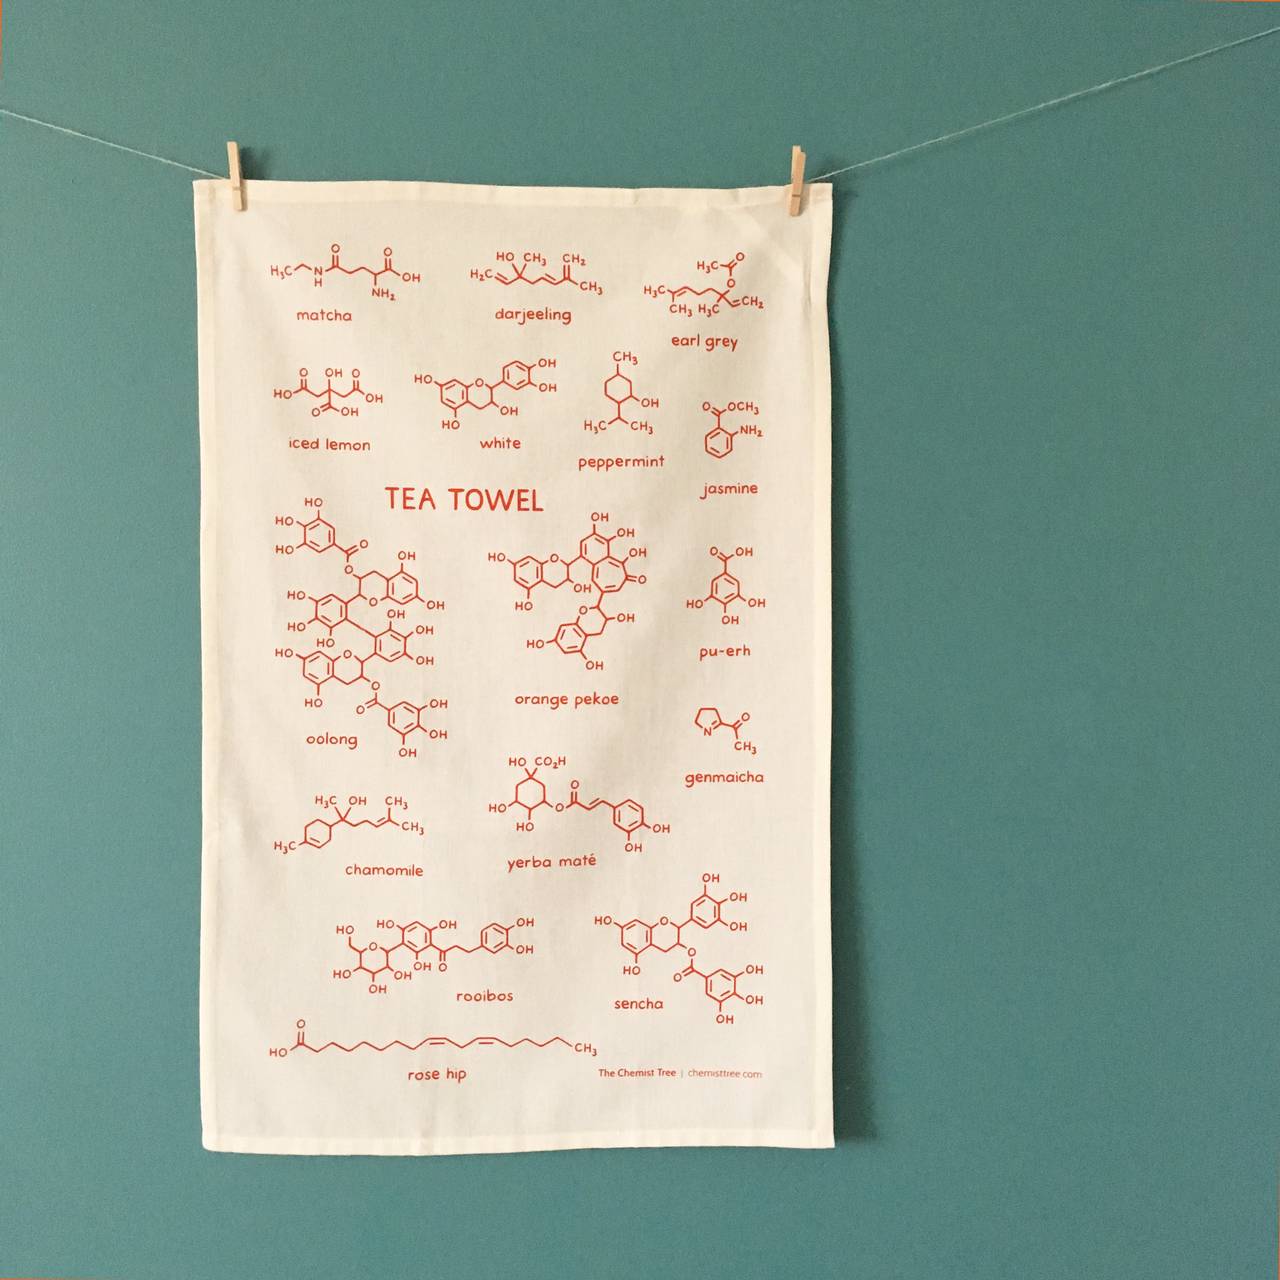 H₃C N H O O OH NH₂
matcha
HO CH₃ CH₂ H₂C CH₃
darjeeling
H₃C O O H₃C CH₃ H₃C CH₂
earl grey
O OH O HO OH O OH
iced lemon
HO O OH OH OH HO
white
CH₃ OH H₃C CH₃
peppermint
O OCH₃ NH₂
jasmine
TEA TOWEL
HO HO HO O O OH O OH HO HO HO OH OH OH HO O HO O O OH OH OH
oolong
OH OH OH O HO O OH HO O OH HO OH
orange pekoe
O OH HO OH OH
pu-erh
N O CH₃
genmaicha
H₃C OH CH₃ CH₃ H₃C
chamomile
HO CO₂H HO HO O O OH OH
yerba maté
HO HO OH OH O OH HO OH OH O OH
rooibos
OH OH OH HO O HO O O OH OH OH
sencha
O HO CH₃
rose hip
The Chemist Tree | chemisttree.com